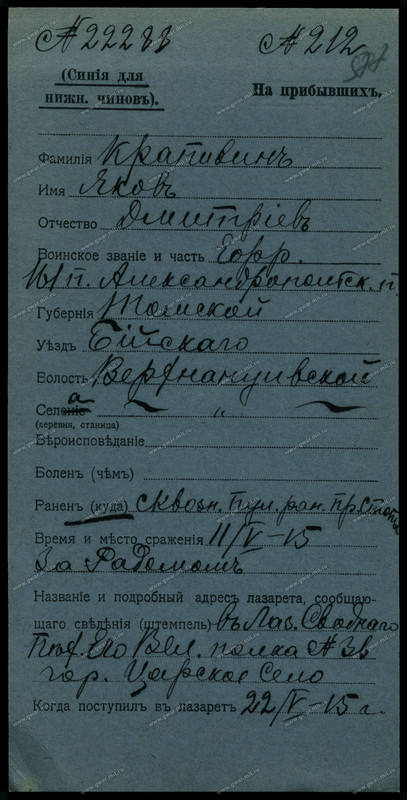 № 22233 № 212
(Синія для нижн. чиновъ).
На прибывшихъ.
Фамилія Крапивинъ
Имя Яковъ
Отчество Дмитріевъ
Воинское званіе и часть Ефр.
п. Александропольск. п.
Губернія Томской
Уѣздъ Бійскаго
Волость
Селеніе а "
(деревня, станица)
Вѣроисповѣданіе
Боленъ (чѣмъ)
Раненъ (куда) сквозн. пул. ран. пр. стопы
Время и мѣсто сраженія 11/V-15
За Радомомъ
Названіе и подробный адресъ лазарета, сообщаю-
щаго свѣдѣнія (штемпель) въ Лаз. Своднаго
Пѣх. Его Вел. полка № 36
гор. Царское Село
Когда поступилъ въ лазаретъ 22/V-15 г.